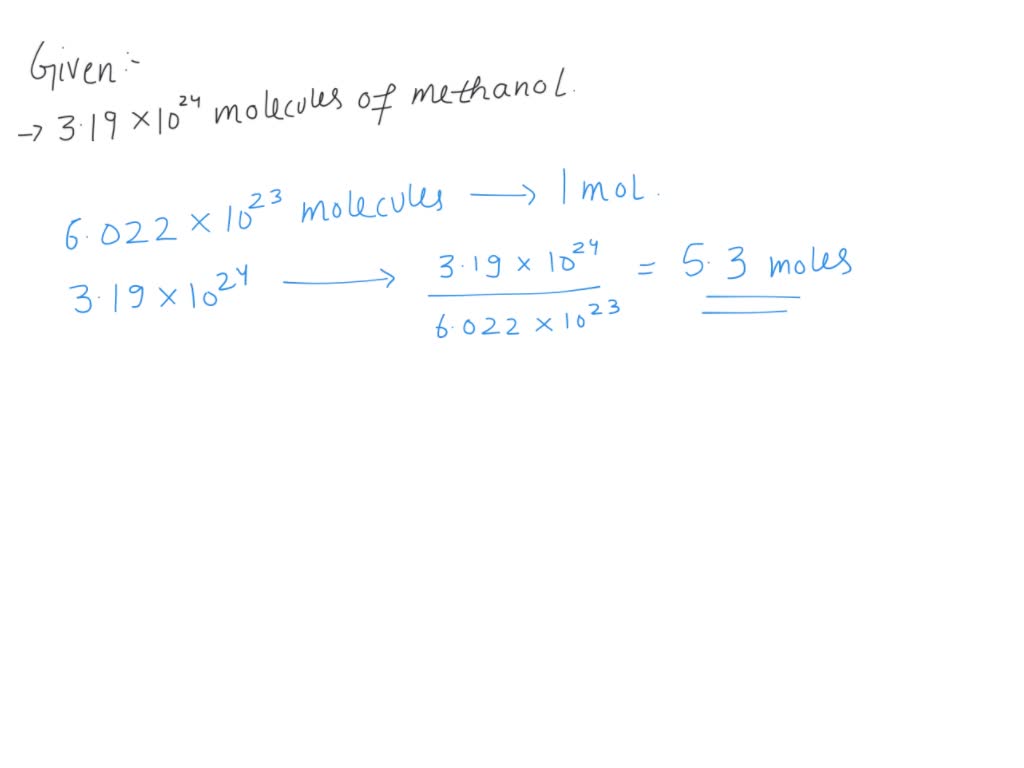 Given :-
→ 3.19 × 10²⁴ molecules of methanol.
6.022 × 10²³ molecules → 1 mol.
3.19 × 10²⁴ → 3.19 × 10²⁴ / 6.022 × 10²³ = 5.3 moles